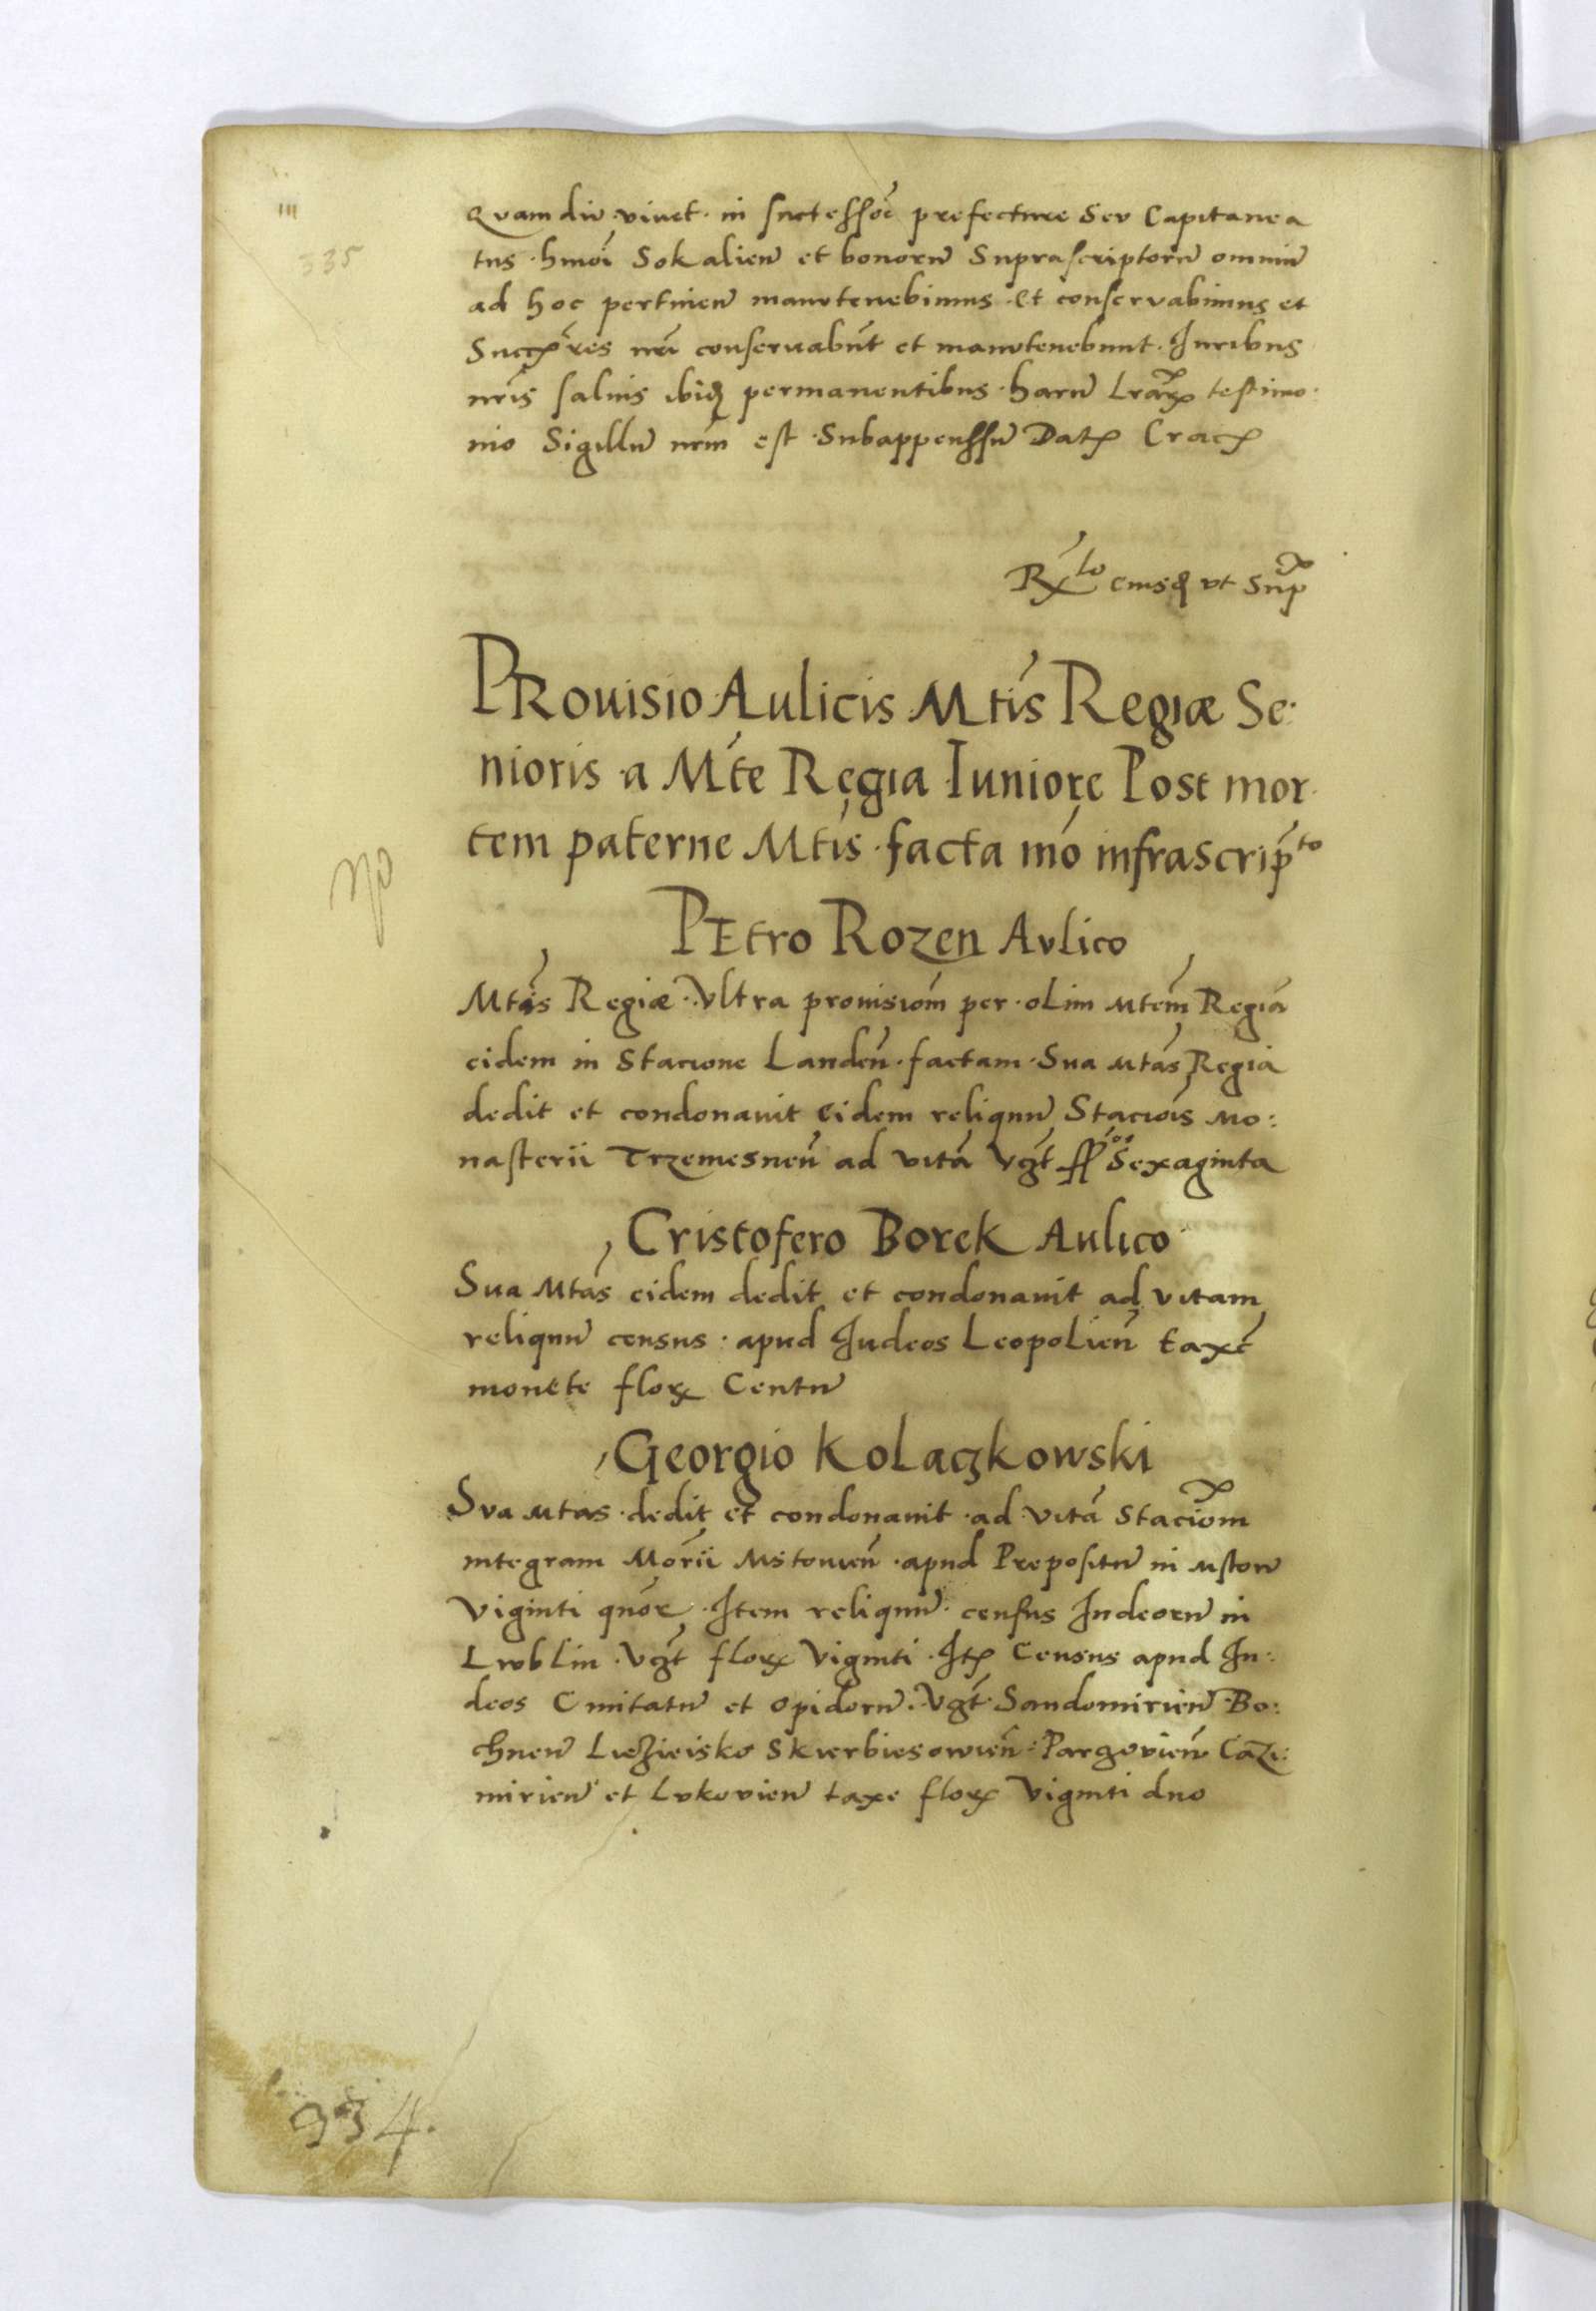 III
335
Quamdiu viuet in successoē prefecture Seu Capitanea
tus hmōi Sokalien̄ et bonorū Suprascriptorū omniū
ad hoc pertinen̄ manutenebimus et conseruabimus et
Succōres nrī conseruabūt et manutenebunt. Iuribus
nrīs saluis ibidꝫ permanentibus harū Lrāꝝ testimo
nio Sigillū nrm̄ est Subappenssū Datꝭ Cracꝭ
Rꝭto eiusdꝭ vt Sup
PRouisio Aulicis Mtis Regiæ Se:
nioris a Mte Regia Iuniore Post mor
tem paterne Mtis facta mō infrascripto
PEtro Rozen Avlico
Mtis Regiæ Vltra prouisiom̄ per olim Mtem Regiā
eidem in Stacione Landen̄ factam Sua Mtas Regia
dedit et condonauit eidem reliquū Stacōis Mo:
nasterii Trzemesnen̄ ad vitā Vgt ffos Sexaginta
Cristofero Borek Aulico
Sua Mtas eidem dedit et condonauit ad vitam
reliquū census apud Iudeos Leopolien̄ taxē
monete floꝝ Centū
Georgio KoLaczkowski
Sva Mtas dedit et condonauit ad vitā Staciom̄
integram Mōrii Mstouien̄ apud Prepositū in Mstow
Viginti quōr Item reliquū census Iudeorū in
Lwblin Vgt floꝝ Viginti Itꝭ Census apud Iu:
deos Ciuitatū et opidorū Vgt Sandomirien̄ Bo:
chnen̄ Liezieisko Skierbiesowien̄ Parczouien̄ Cazi:
mirien̄ et Lvkovien̄ taxe floꝝ Viginti duo
334.